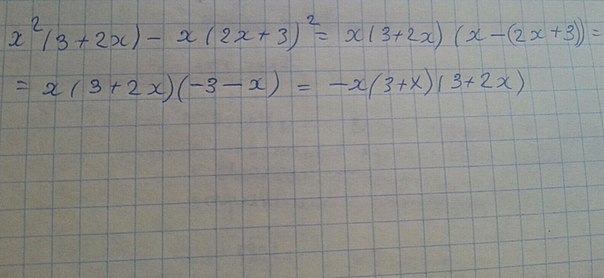 x²(3+2x) - x(2x+3)² = x(3+2x)(x-(2x+3)) =
= x(3+2x)(-3-x) = -x(3+x)(3+2x)